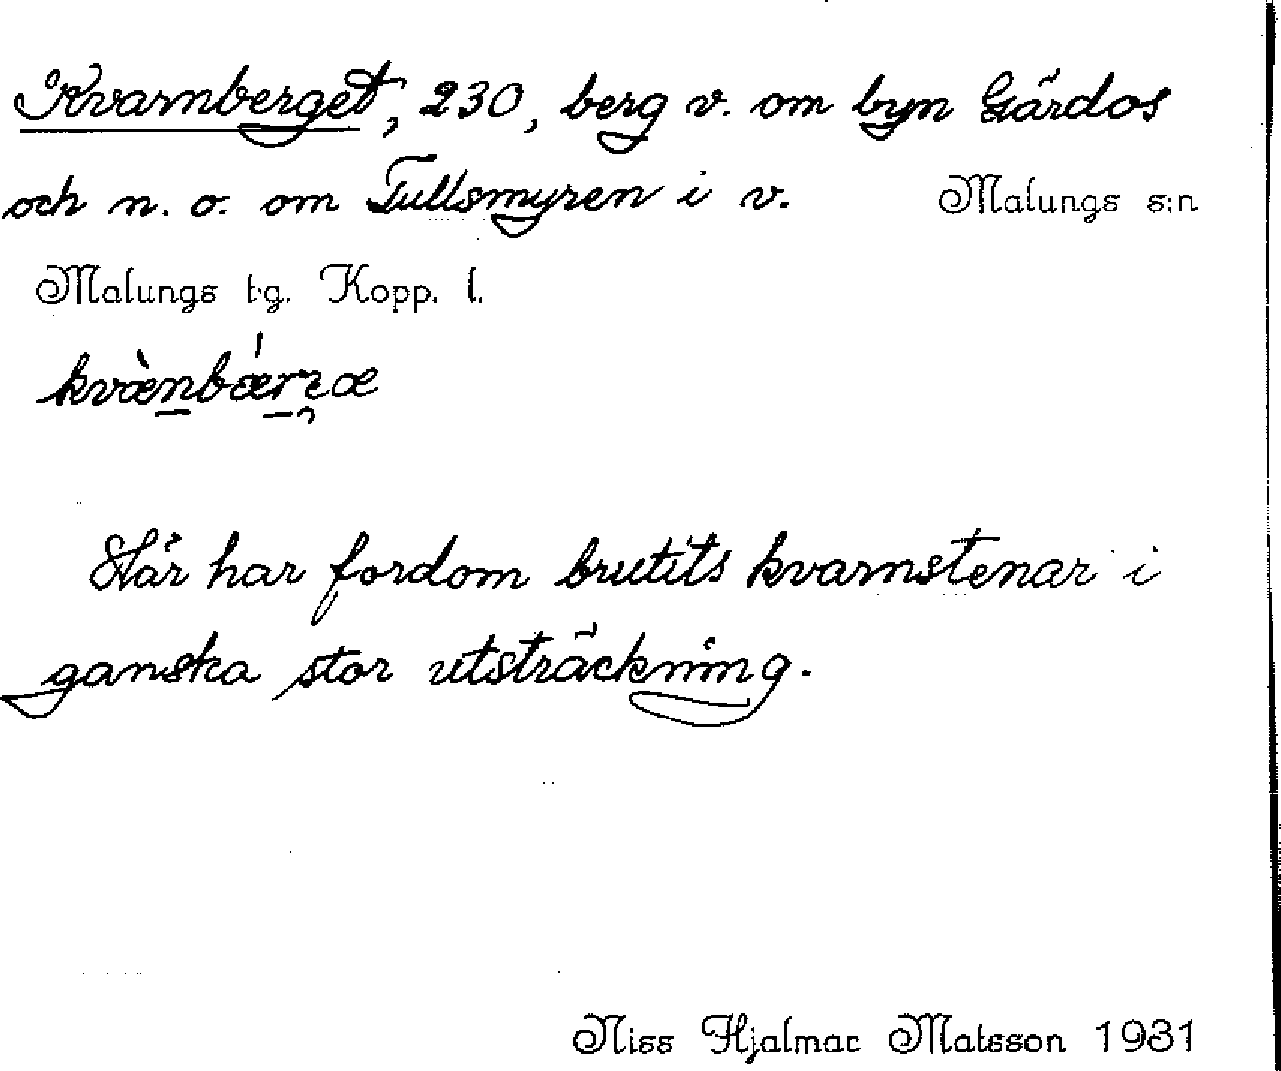 Kvarnberget, 230, berg v. om byn Gärdos
och n. o. om Tullsmyren i v. Malungs s:n
Malungs tg. Kopp. l.
kvæ̀n̠bǽr̠ʒæ
Här har fordom brutits kvarnstenar i
ganska stor utsträckning.
Niss Hjalmar Matsson 1931